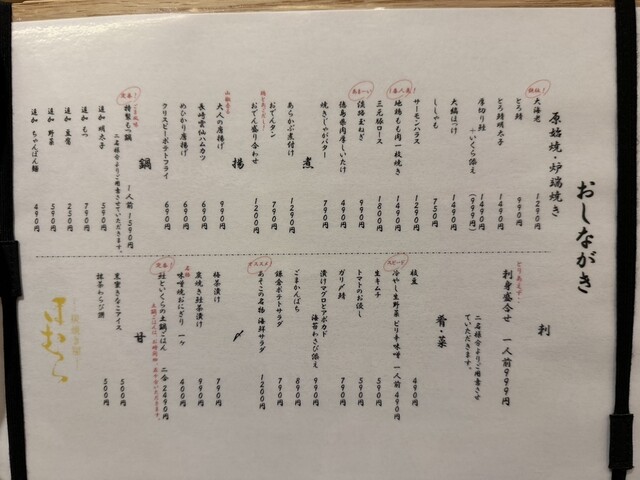 おしながき
原始焼・炉端焼き
絶品!
大海老 1290円
とろ鯖 990円
とろ鯖明太子 1490円
厚切り鮭 1490円
+いくら添え (999円)
大縞ほっけ 1490円
ししゃも 750円
サーモンハラス 1290円
1番人気!
地鶏もも肉一枚焼き 1490円
三元豚ロース 1800円
あま〜い
淡路玉ねぎ 990円
徳島県肉厚しいたけ 490円
焼きじゃがバター 790円
煮
あらかぶ煮付け 1290円
おでんタン 790円
おでん盛り合わせ 1200円
揚
大人の唐揚げ 990円
長崎雲仙ハムカツ 990円
めひかり唐揚げ 690円
クリスピーポテトフライ 690円
鍋
定番!
特製もつ鍋 一人前 1590円
二名様分よりご用意させていただきます。
追加 明太子 590円
追加 もつ 790円
追加 豆腐 250円
追加 野菜 590円
追加 ちゃんぽん麺 490円
刺
とりあえず…
刺身盛合せ 一人前999円
二名様分よりご用意させていただきます。
肴・菜
枝豆 490円
スピード
冷やし生野菜 ピリ辛味噌 一人前 490円
生キムチ 590円
トマトのお浸し 590円
ガリ〆鯖 790円
漬けマグロとアボカド
海苔わさび添え 990円
ごまかんぱち 890円
鎌倉ポテトサラダ 790円
オススメ
あそこの名物 海鮮サラダ 1200円
〆
梅茶漬け 790円
炭焼き鮭茶漬け 990円
名物
味噌焼おにぎり 一ケ 400円
定番!
鮭といくらの土鍋ごはん 二合 2490円
甘
黒蜜きなこアイス 500円
抹茶わらび餅 500円